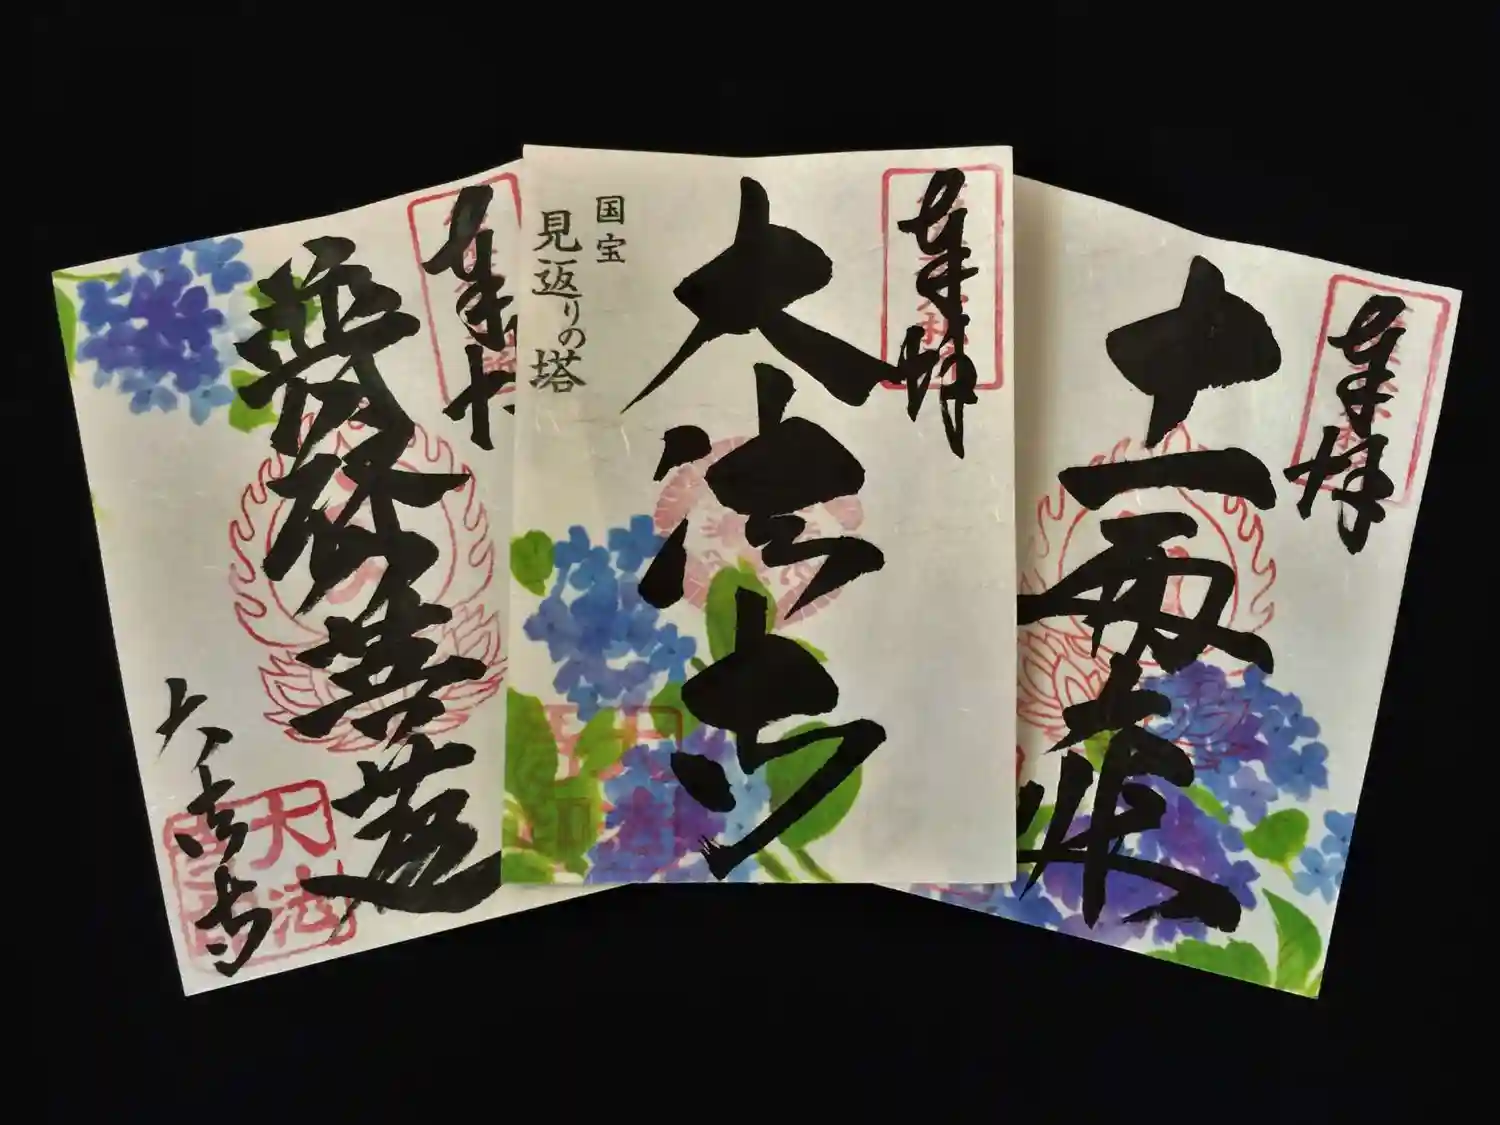 奉拝
普賢菩薩
大法寺
奉拝
大法寺
国宝
見返りの塔
奉拝
十一面大悲